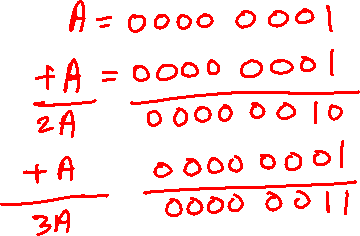 A = 0000 0001
+A = 0000 0001
2A 0000 0010
+A 0000 0001
3A 0000 0011